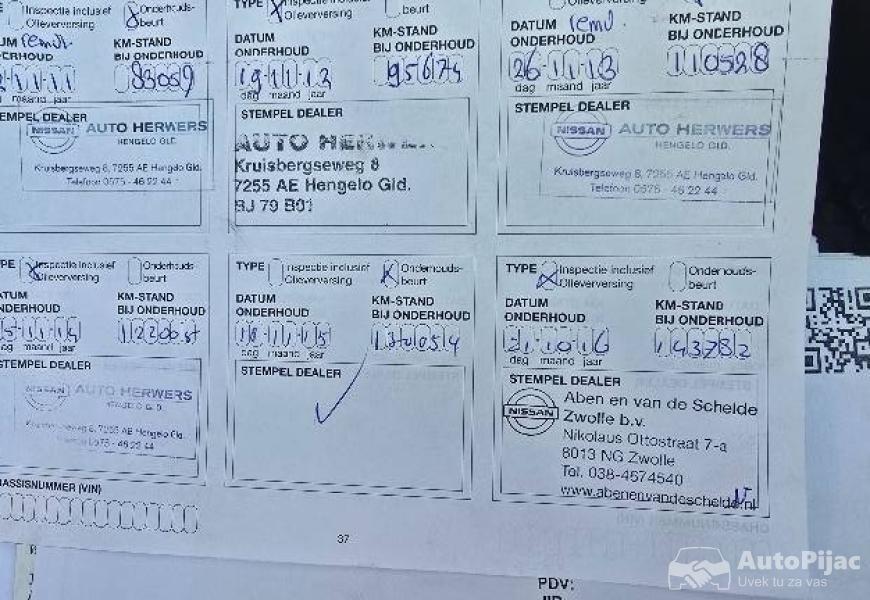 Inspectie inclusief Onderhouds-
Olieverversing beurt
KM-STAND
BIJ ONDERHOUD
83059
maand jaar
STEMPEL DEALER
NISSAN AUTO HERWERS
HENGELO GLD.
Kruisbergseweg 8, 7255 AE Hengelo Gld.
Telefoon 0575 - 46 22 44
TYPE
Olieverversing beurt
DATUM KM-STAND
ONDERHOUD BIJ ONDERHOUD
95674
dag maand jaar
STEMPEL DEALER
AUTO
Kruisbergseweg 8
7255 AE Hengelo Gld.
BJ 79 B01
DATUM KM-STAND
ONDERHOUD BIJ ONDERHOUD
26 11 13 110528
dag maand jaar
STEMPEL DEALER
NISSAN AUTO HERWERS
HENGELO GLD.
Kruisbergseweg 8, 7255 AE Hengelo Gld.
Telefoon 0575 - 46 22 44
Inspectie inclusief Onderhouds-
Olieverversing beurt
KM-STAND
BIJ ONDERHOUD
maand jaar
STEMPEL DEALER
NISSAN AUTO HERWERS
7255 AE Hengelo Gld.
0575 - 46 22 44
CHASSISNUMMER (VIN)
TYPE Inspectie inclusief Onderhouds-
Olieverversing beurt
DATUM KM-STAND
ONDERHOUD BIJ ONDERHOUD
dag maand jaar
STEMPEL DEALER
TYPE Inspectie inclusief Onderhouds-
Olieverversing beurt
DATUM KM-STAND
ONDERHOUD BIJ ONDERHOUD
21 10 16 143782
dag maand jaar
STEMPEL DEALER
NISSAN
Aben en van de Schelde
Zwolle b.v.
Nikolaus Ottostraat 7-a
8013 NG Zwolle
Tel. 038-4574540
www.abenenvandeschelde.nl
37
PDV:
AutoPijac
Uvek tu za vas